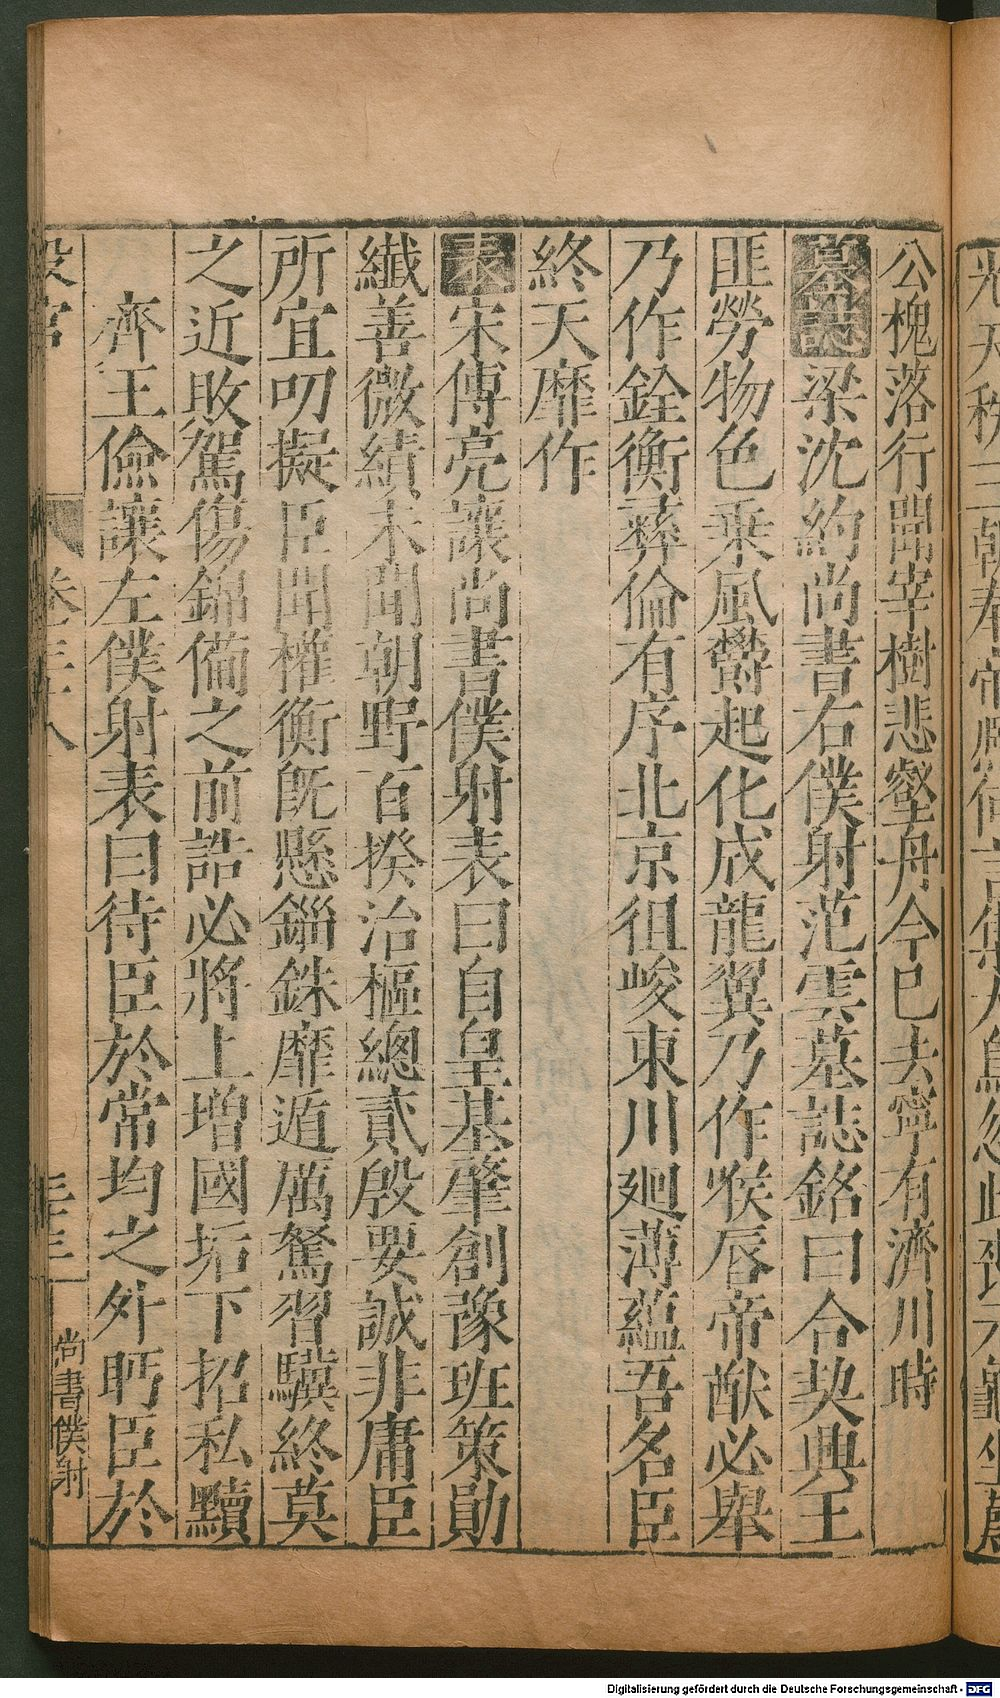 公槐落行聞宰樹悲壑舟今已去寧有濟川時
墓誌梁沈約尚書右僕射范雲墓誌銘曰合契興王
匪勞物色乗風欝起化成龍翼乃作喉唇帝猷必舉
乃作銓衡彝倫有序北京徂峻東川廻薄蘊吾名臣
終天靡作
表宋傅亮讓尚書僕射表曰自皇基肇創豫班策勛
纎善微績未聞朝野百揆治樞總貳殷要誠非庸臣
所宜叨擬臣聞權衡旣懸錙銖靡遁厲駑習驥終莫
之近敗駕傷錦偹之前誥必將上増國垢下招私黷
齊王儉讓左僕射表曰待臣於常均之外眄臣於
設官
卷三六八
三三
尚書僕射
Digitalisierung gefördert durch die Deutsche Forschungsgemeinschaft - DFG